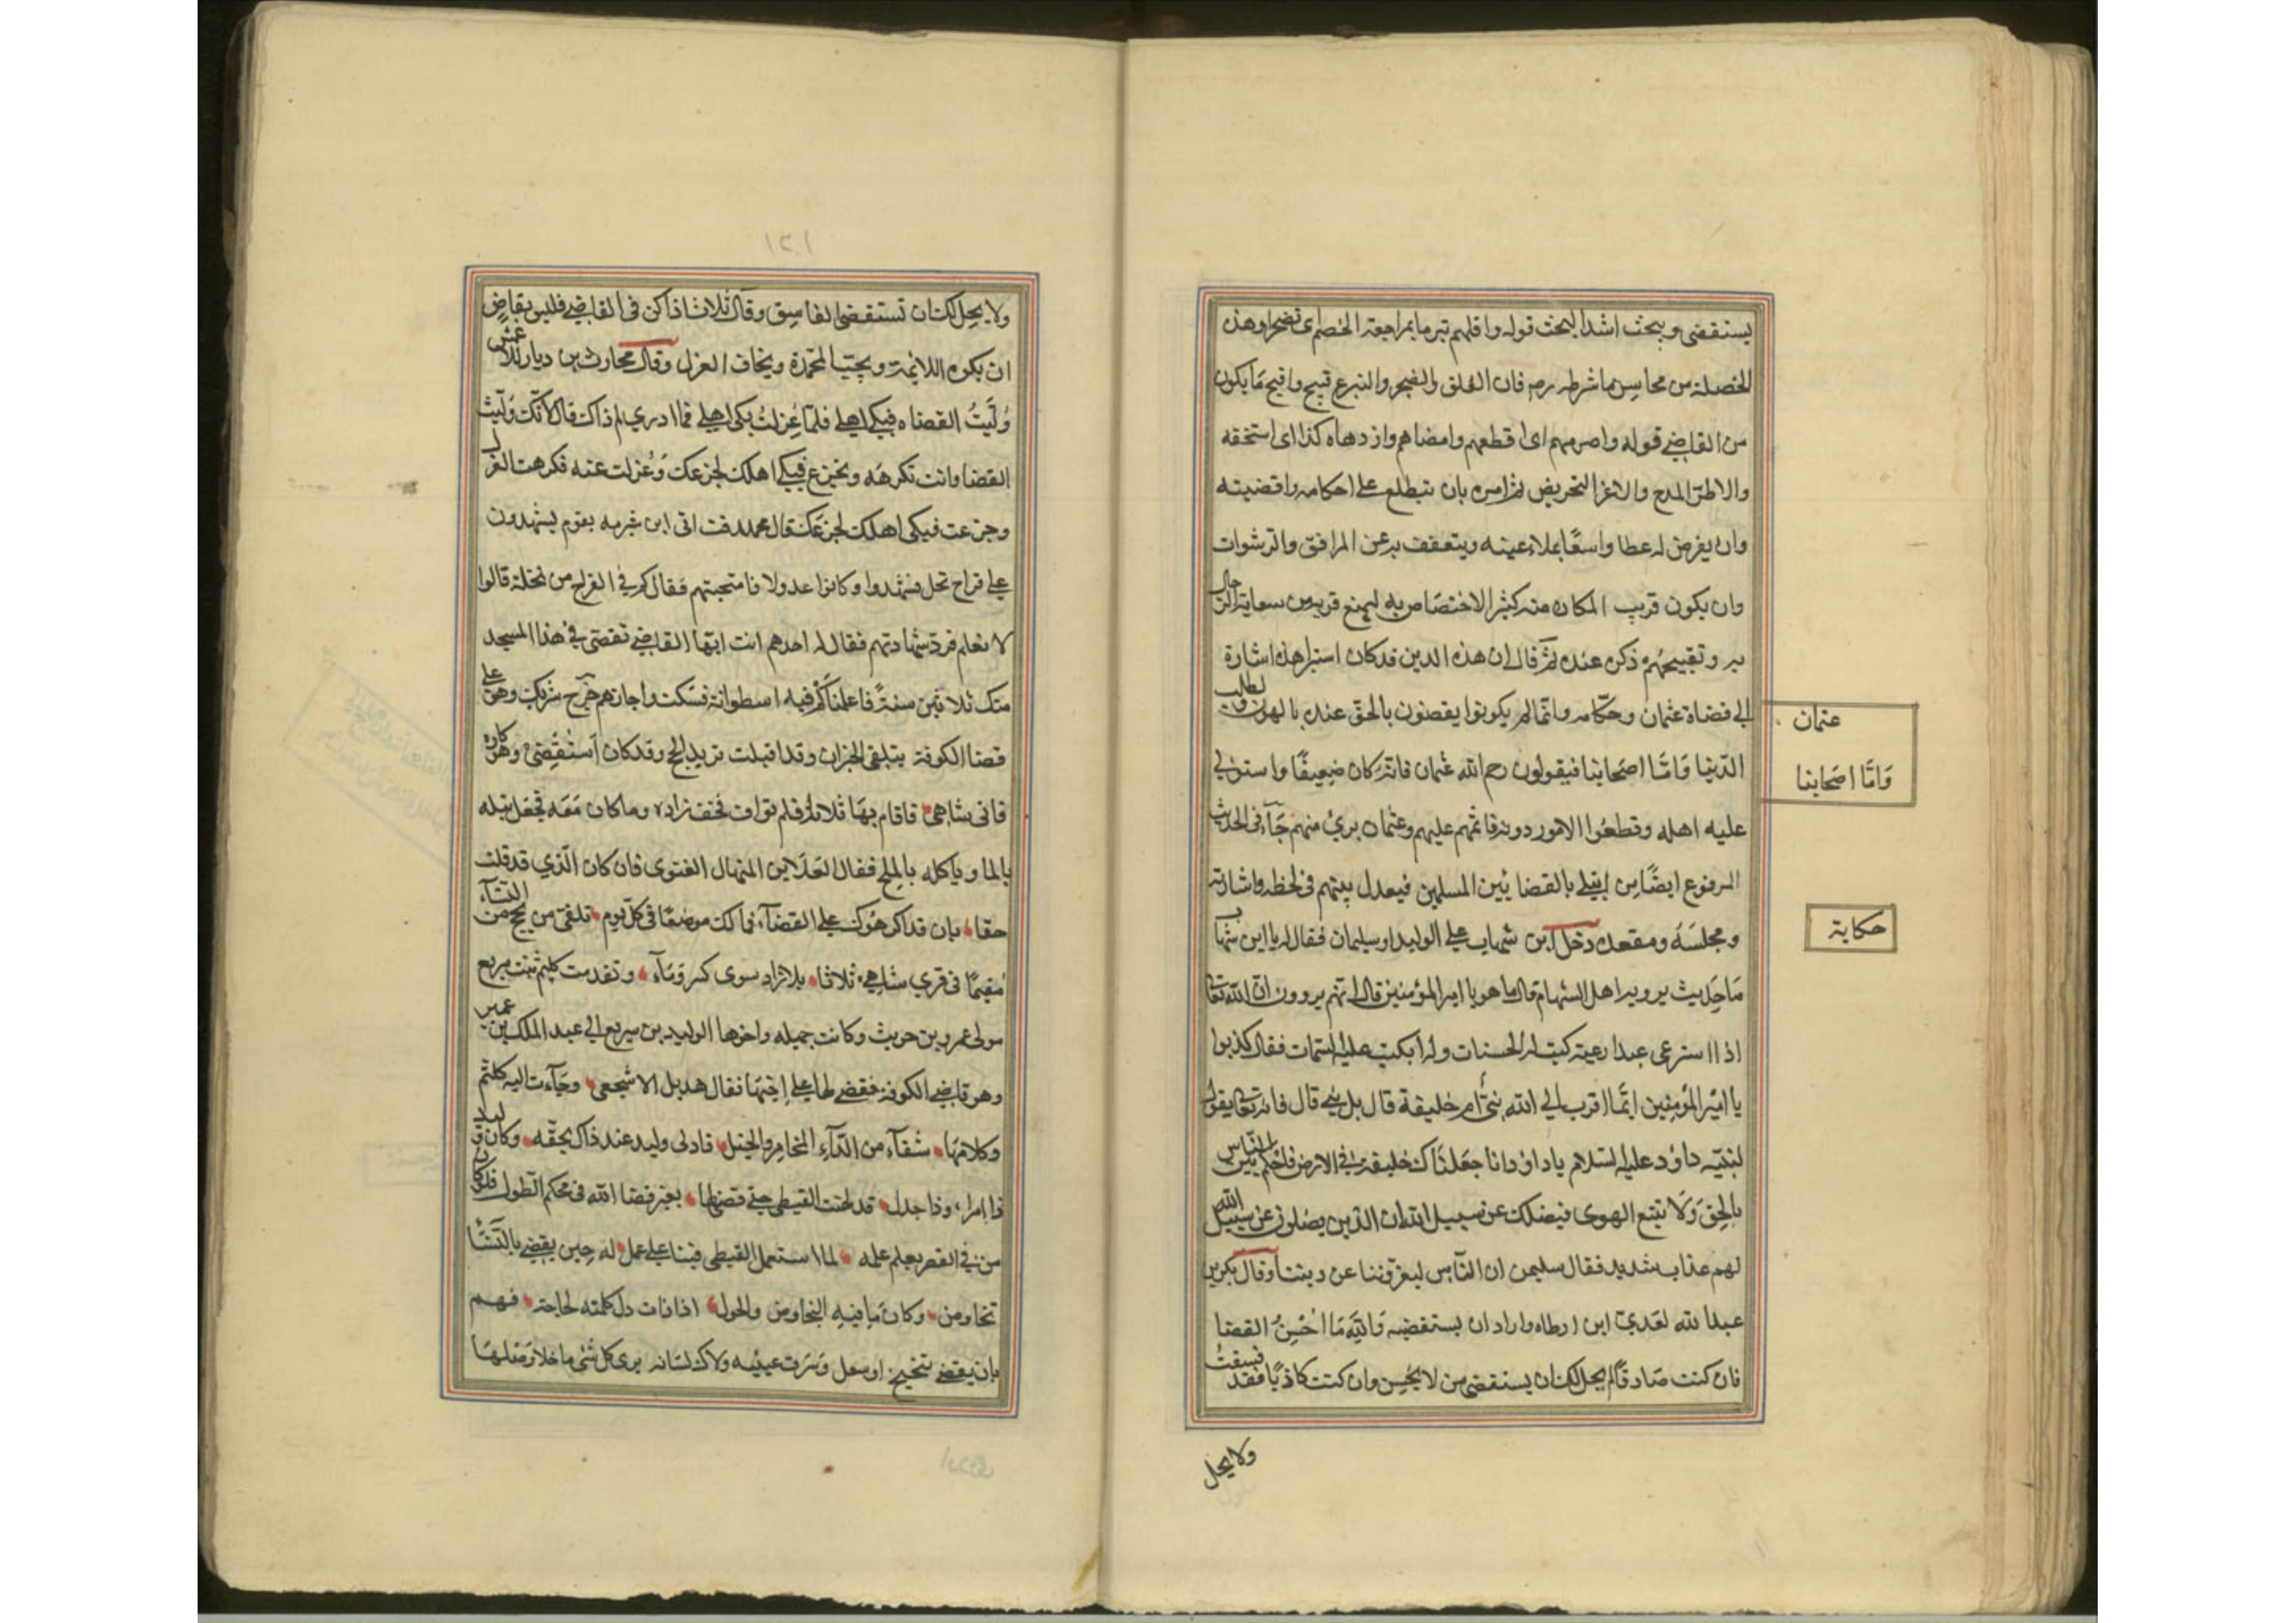 يستقضى ويبحث اشد البحث قوله واقلهم تبرما بمراجعة الخصم اى تضجرا وهذه
الخصلة من محاسن ماشرطه رم فان القلق والضجر والتبرع قبيح واقبح مَا يكون
من القاضي قوله واصرمهم اى اقطعهم وامضاهم وازدهاه كذا اى استخفه
والاطرا المدح والاغرا التحريض ثم امره بان يتطلع على احكامه واقضيته
وان يفرض له عطا واسعًا يملاء عينه ويتعفف به عن المرافق والرشوات
وان يكون قريب المكان منه كثير الاختصاص به ليمنع قربه من سعاية الرجال
به وتقبيحهم ذكره عنده ثم قال ان هذه الدين قد كان اسيرا هذه اشارة
الى قضاة عثمان وحكّامه وانّما لم يكونوا يقضون بالحق عنده بالهوى لطلب
عثمان
الدّنيا وَامّا اصحابنا فيقولون رحم الله عثمان فانّه كان ضعيفًا واستولى
وَامّا اصحَابنا
عليه اهله وقطعُوا الامور دونه فاثمهم عليهم وعثمان برئ منهم جَآء فى الحديث
المرفوع ايضًا من ابتلي بالقضا بَين المسلمين فيعدل بينهم فى لحظه واشارته
ومجلسَه ومقعده دخل ابن شهاب على الوليد او سليمان فقال له يا ابن شهاب
حكاية
مَا حَدِيث يرويه اهل الشام قال ما هو يا امير المؤمنين قال انهم يروون ان الله تعالى
اذا استرعى عبدا رعيته كتبت له الحسنات ولم يكتب عليه السيّات فقال كذبوا
يا امير المؤمنين ايّما اقرب الى الله نبىّ ام خليفة قال بل نبي قال فانه تعالى يقول
لنبيّه داؤد عليه السلام ياداؤد انا جَعلنَاك خليفة فى الارض فاحكم بين النّاس
بالحق وَلَا تتبع الهوى فيضلك عن سبيل الله ان الذين يضلون عن سبيل الله
لهم عذاب شديد فقال سليمن ان النّاس ليغروننا عن ديننا وقال بكر بن
عبد الله لعَدىّ ابن ارطاه واراد ان يستقضيه وَاللّه مَا احسِنُ القضا
فان كنت صَادقًا لم يحل لك ان يستقضى من لا يحسِن وان كنت كاذبًا فقد فسقت
ولا يحل
١٢١
ولا يحِل لك ان تستقضى الفاسِق وقال ثلاث اذا كن فى القاضي فليس بقاضٍ
ان يكره اللايمة ويحبّ المحمدة ويخاف العزل وقال محارث بن ديار للاعمش
وُلّيتُ القضاه فبكى اهلي فلمّا عُزلتُ بكى اهلي فما ادري لم ذاك قال لانّك وُلّيت
القضا وانت تكرهه وتجزع فبكى اهلك لجزعك وَعُزلت عنه فكرهت العزل
وجزعت فبكى اهلك لجزعَك قال محمد فت اتى ابن شبرمه بقوم يشهدون
على قراح نخل فشهدوا وكانوا عدولا فامتحنهم فقال كم فى القراح من نخلة قالوا
لا نعلم فرد شهادتهم فقال له احدهم انت ايّها القاضي تقضى فى هذا المسجد
منك ثلاثين سنةً فاعلمنا كم فيه اسطوانة فسكت واجازهم خرج شريك وهو على
قضا الكوفة يتلقى الخيزران وقد اقبلت تريد الحج وقد كان اَستُقضى وهو كاره
فاتى شاهى فاقام بها ثلاثا فلم تواف فخف زاده وماكان مَعَه فجعَل يبله
بالما وياكله بالملح فقال العَلاء بن المنهال الغنوى فان كان الّذي قد قلت
حقا بان قد اكرهُوك على القضآء فمالك موضعًا فى كلّ يوم تلقى من يحج من النسآء
مُقيمًا فى قري شاهي ثلاثا بلا زاد سوى كسر وَمَآء وتقدمت كلثم بنت سريع
مولى عمرو بن حريث وكانت جميله واخوها الوليد بن سريع الى عبد الملك بن عمير
وهو قاضي الكوفة فقضى لها على اخيها فقال هديل الاشجعى وجَآءت اليه كلثم
وكلامها شفآء من الدّآء المخامر والخبل فادلى وليد عند ذاك بحقّه وكان وليد
ذا امراء وذا جدل قد لهنت القبطى حتى قضى لها بغير قضا الله فى محكم الطّول فلو كان
من فى القصر يعلم علمه لما استعمل القبطى فينا على عمل له حين يقضي بالنّسَاء
تخاوص وكان مَا فيهِ التخاوض والحول اذا ذات دل كلمته لحاجة فهم
بان يقضى تنحنح او سعل وَبَرّت عينيه ولاك لسانه يرى كل شئ ما خلا وَصْلها